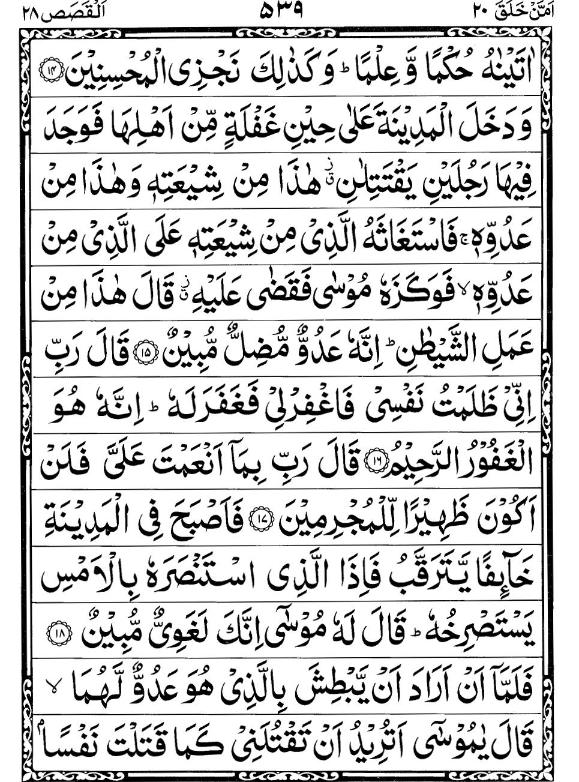 اَمَّنْ خَلَقَ ٢٠ ۵۳۹ اَلْقَصَص ٢٨
اٰتَيْنٰهُ حُكْمًا وَّعِلْمًا ؕ وَكَذٰلِكَ نَجْزِى الْمُحْسِنِيْنَ ۝۱۴
وَدَخَلَ الْمَدِيْنَةَ عَلٰى حِيْنِ غَفْلَةٍ مِّنْ اَهْلِهَا فَوَجَدَ
فِيْهَا رَجُلَيْنِ يَقْتَتِلٰنِ ۫ ق هٰذَا مِنْ شِيْعَتِهٖ وَهٰذَا مِنْ
عَدُوِّهٖ ۚ فَاسْتَغَاثَهُ الَّذِىْ مِنْ شِيْعَتِهٖ عَلَى الَّذِىْ مِنْ
عَدُوِّهٖ ۙ فَوَكَزَهٗ مُوْسٰى فَقَضٰى عَلَيْهِ ۫ ق قَالَ هٰذَا مِنْ
عَمَلِ الشَّيْطٰنِ ؕ اِنَّهٗ عَدُوٌّ مُّضِلٌّ مُّبِيْنٌ ۝۱۵ قَالَ رَبِّ
اِنِّىْ ظَلَمْتُ نَفْسِىْ فَاغْفِرْلِىْ فَغَفَرَ لَهٗ ؕ اِنَّهٗ هُوَ
الْغَفُوْرُ الرَّحِيْمُ ۝۱۶ قَالَ رَبِّ بِمَاۤ اَنْعَمْتَ عَلَىَّ فَلَنْ
اَكُوْنَ ظَهِيْرًا لِّلْمُجْرِمِيْنَ ۝۱۷ فَاَصْبَحَ فِى الْمَدِيْنَةِ
خَآئِفًا يَّتَرَقَّبُ فَاِذَا الَّذِى اسْتَنْصَرَهٗ بِالْاَمْسِ
يَسْتَصْرِخُهٗ ؕ قَالَ لَهٗ مُوْسٰۤى اِنَّكَ لَغَوِىٌّ مُّبِيْنٌ ۝۱۸
فَلَمَّاۤ اَنْ اَرَادَ اَنْ يَّبْطِشَ بِالَّذِىْ هُوَ عَدُوٌّ لَّهُمَا ۙ
قَالَ يٰمُوْسٰۤى اَتُرِيْدُ اَنْ تَقْتُلَنِىْ كَمَا قَتَلْتَ نَفْسًا ۢ